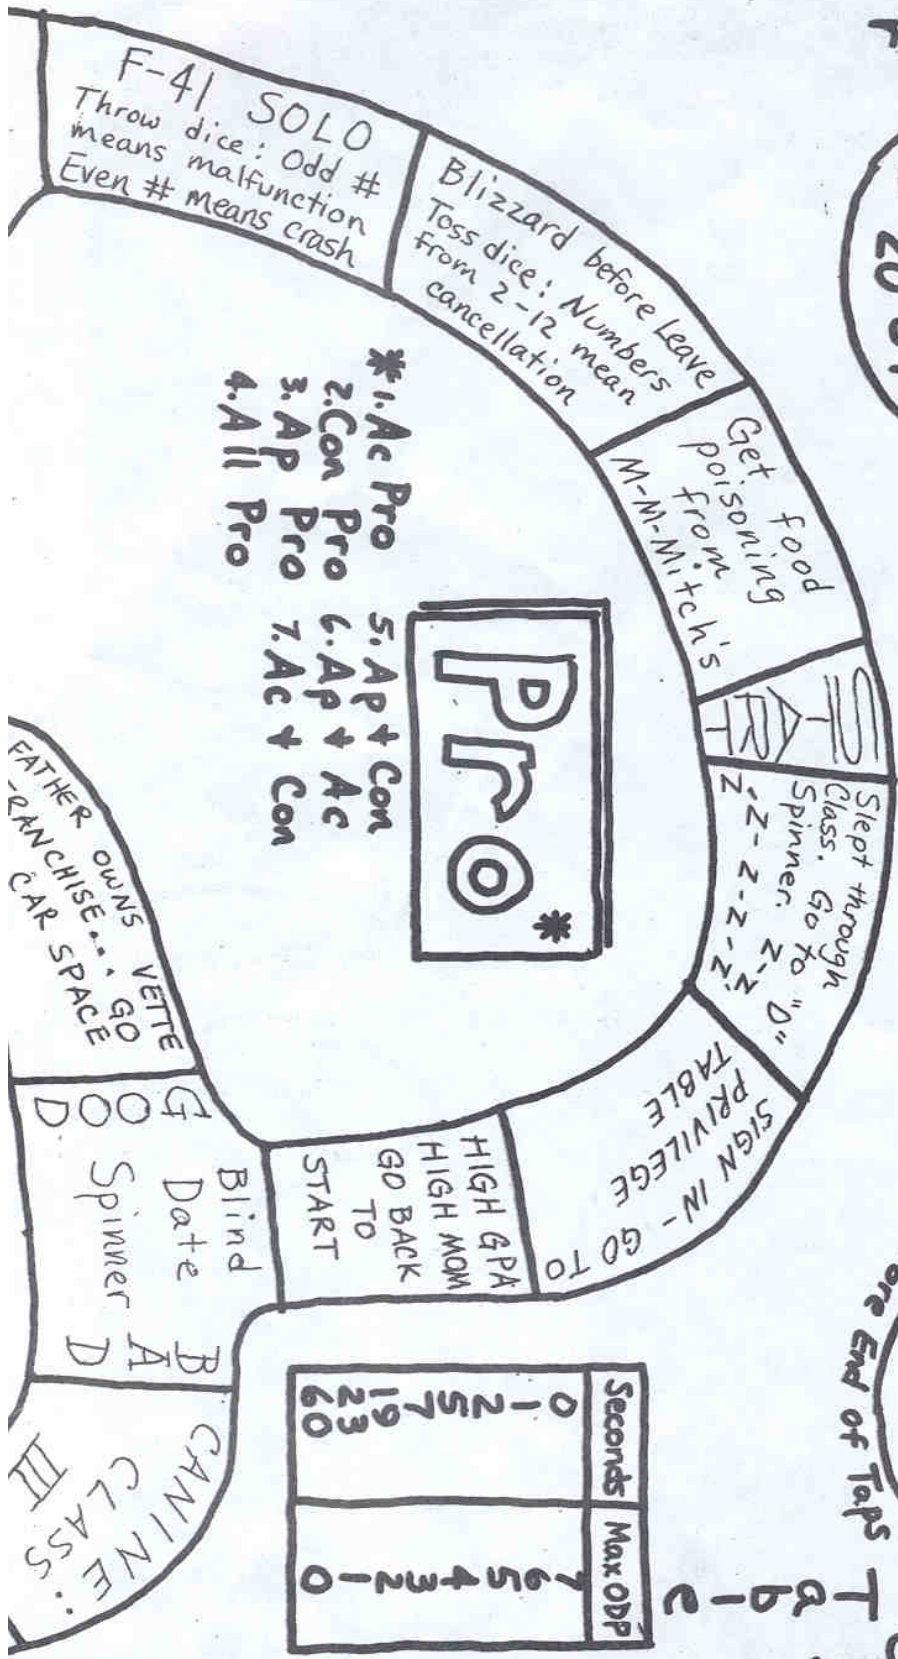 F-41 SOLO
Throw dice: Odd #
means malfunction
Even # means crash
Blizzard before Leave
Toss dice: Numbers
from 2-12 mean
cancellation
Get food
poisoning
from
M-M-Mitch's
START
Slept through
Class. Go to "D"
Spinner. Z-Z
-Z-Z-Z-Z-
Z
SIGN IN - GO TO
PRIVILEGE
TABLE
HIGH GPA
HIGH MOM
GO BACK
TO
START
Blind
Date
Spinner
GOOD
BAD
CANINE:
CLASS
III
FATHER OWNS VETTE
FRANCHISE... GO
CAR SPACE
Pro *
*1. Ac Pro
2. Con Pro
3. Ap Pro
4. All Pro
5. Ap & Con
6. Ap & Ac
7. Ac & Con
ore End of Taps
Table
Seconds Max ODP
0 7
1 6
2 5
5 4
7 3
19 2
23 1
60 0